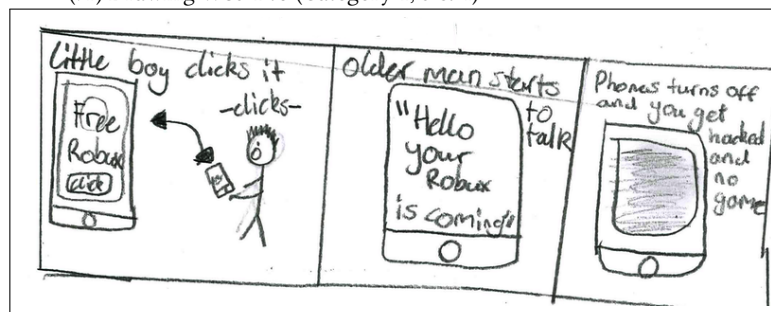 Little boy clicks it
-clicks-
Free
Robux
click
older man starts
to
talk
"Hello
your
Robux
is coming"
Phones turns off
and you get
hacked
and
no
game